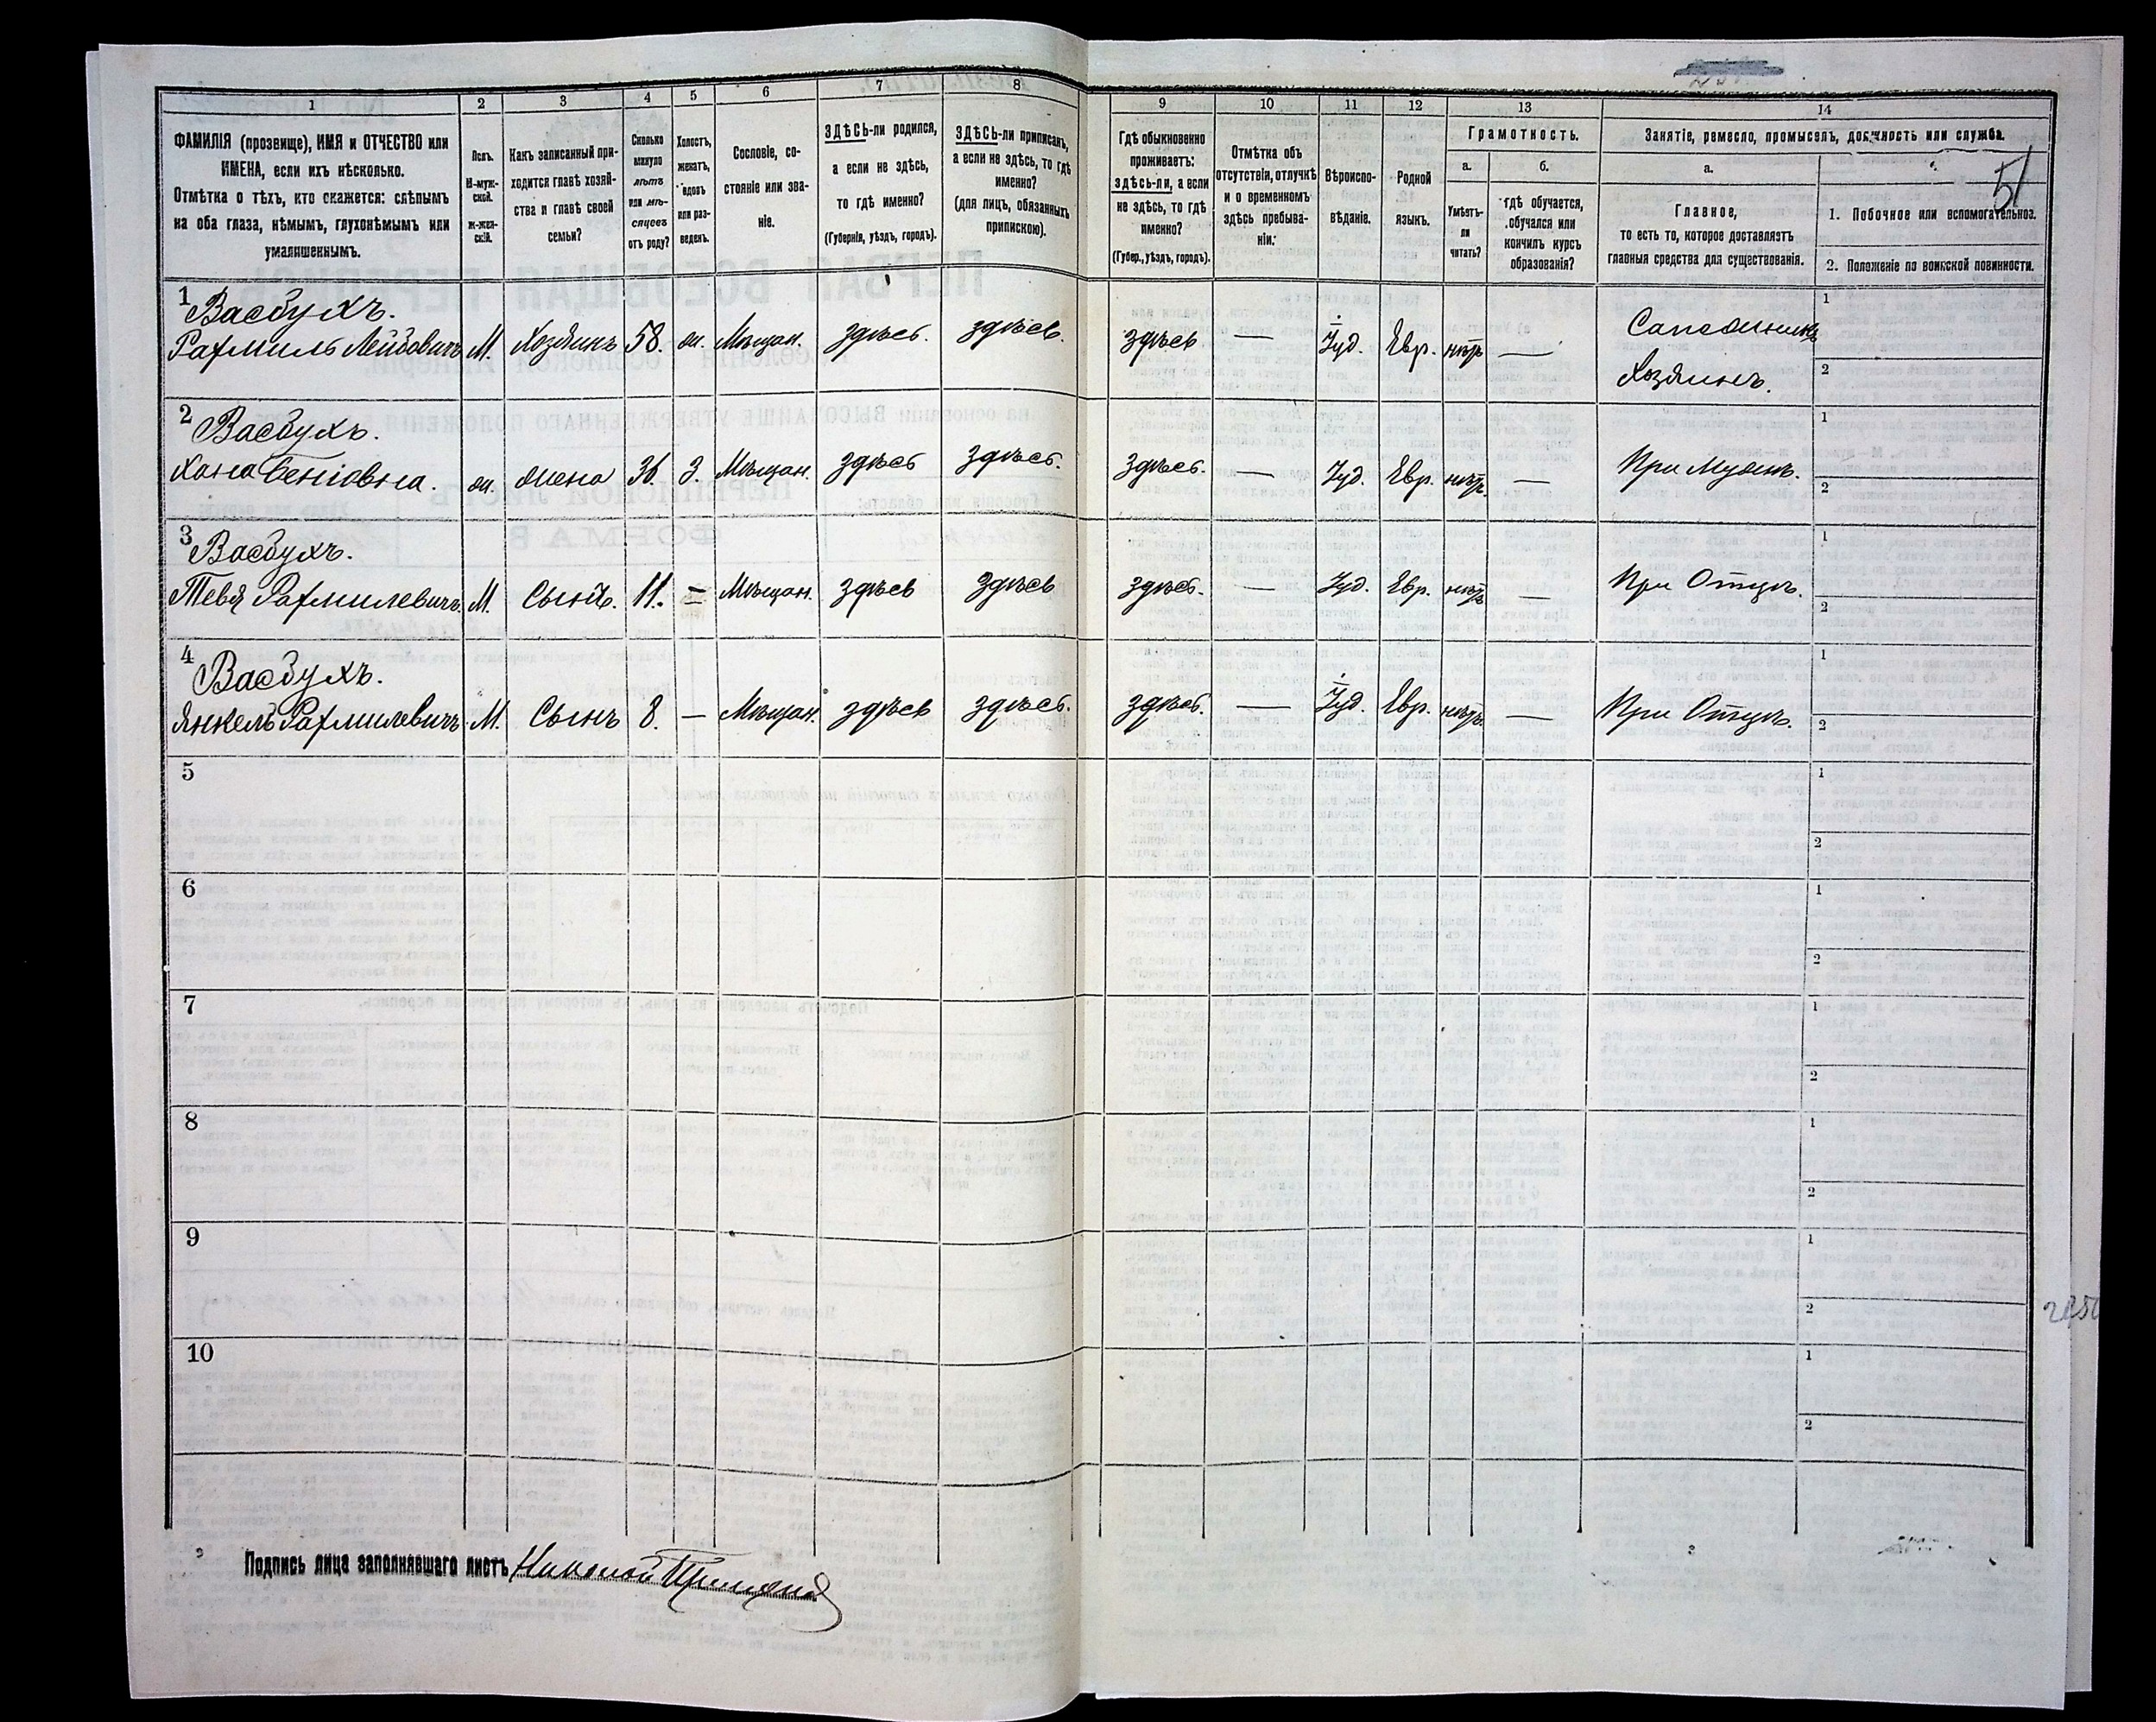 1
2
3
4
5
6
7
8
9
10
11
12
13
14
ФАМИЛІЯ (прозвище), ИМЯ и ОТЧЕСТВО или
ИМЕНА, если ихъ нѣсколько.
Отмѣтка о тѣхъ, кто окажется: слѣпымъ
на оба глаза, нѣмымъ, глухонѣмымъ или
умалишеннымъ.
Полъ.
М-муж-
ской.
ж-жен-
скій.
Какъ записанный при-
ходится главѣ хозяй-
ства и главѣ своей
семьи?
Сколько
минуло
лѣтъ
или мѣ-
сяцевъ
отъ роду?
Холостъ,
женатъ,
вдовъ
или раз-
веденъ.
Сословіе, со-
стояніе или зва-
ніе.
ЗДѢСЬ-ли родился,
а если не здѣсь,
то гдѣ именно?
(Губернія, уѣздъ, городъ).
ЗДѢСЬ-ли приписанъ,
а если не здѣсь, то гдѣ
именно?
(для лицъ, обязанныхъ
припискою).
Гдѣ обыкновенно
проживаетъ:
здѣсь-ли, а если
не здѣсь, то гдѣ
именно?
(Губер., уѣздъ, городъ).
Отмѣтка объ
отсутствіи, отлучкѣ
и о временномъ
здѣсь пребыва-
ніи.
Вѣроиспо-
вѣданіе.
Родной
языкъ.
Грамотность.
а.
б.
Умѣетъ-
ли
читать?
гдѣ обучается,
обучался или
кончилъ курсъ
образованія?
Занятіе, ремесло, промыселъ, должность или служба.
а.
51
Главное,
то есть то, которое доставляетъ
главныя средства для существованія.
1. Побочное или вспомогательное.
2. Положеніе по воинской повинности.
1
Васбухъ.
Рахмиль Лейбовичъ М. Хозяинъ 58. ж. Мѣщан. здѣсь. здѣсь. здѣсь — Іуд. Евр. нѣтъ —
Сапожникъ
Хозяинъ.
1
2
2
Васбухъ.
Хана Беніовна. ж. жена 36. З. Мѣщан. здѣсь здѣсь. здѣсь. — Іуд. Евр. нѣтъ. — При Мужѣ.
1
2
3
Васбухъ.
Тевя Рахмилевичъ. М. Сынъ. 11. — Мѣщан. здѣсь здѣсь здѣсь. — Іуд. Евр. нѣтъ — При Отцѣ.
1
2
4
Васбухъ.
Янкель Рахмилевичъ. М. Сынъ 8. — Мѣщан. здѣсь здѣсь. здѣсь. — Іуд. Евр. нѣтъ. — При Отцѣ.
1
2
5
1
2
6
1
2
7
1
2
8
1
2
9
1
2
10
1
2
Подпись лица заполнявшаго листъ